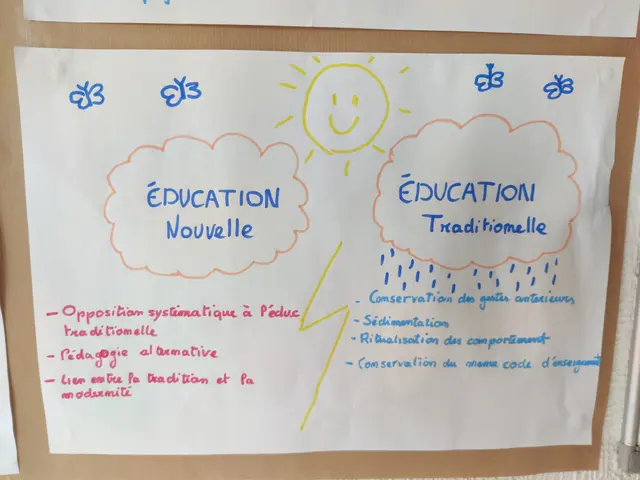 ÉDUCATION
Nouvelle
- Opposition systématique à l'éduc
traditionelle
- Pédagogie alternative
- Lien entre la tradition et la
modernité
ÉDUCATION
Traditionelle
- Conservation des gestes antérieurs
- Sédimentation
- Ritualisation des comportement
- Conservation du meme code d'enseignant